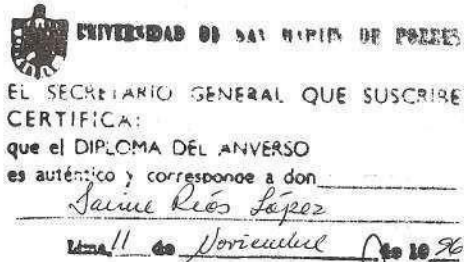 UNIVERSIDAD DE SAN MARTIN DE PORRES
EL SECRETARIO GENERAL QUE SUSCRIBE
CERTIFICA:
que el DIPLOMA DEL ANVERSO
es auténtico y corresponde a don
Jaime Ríos López
Lima, 11 de Noviembre de 1996